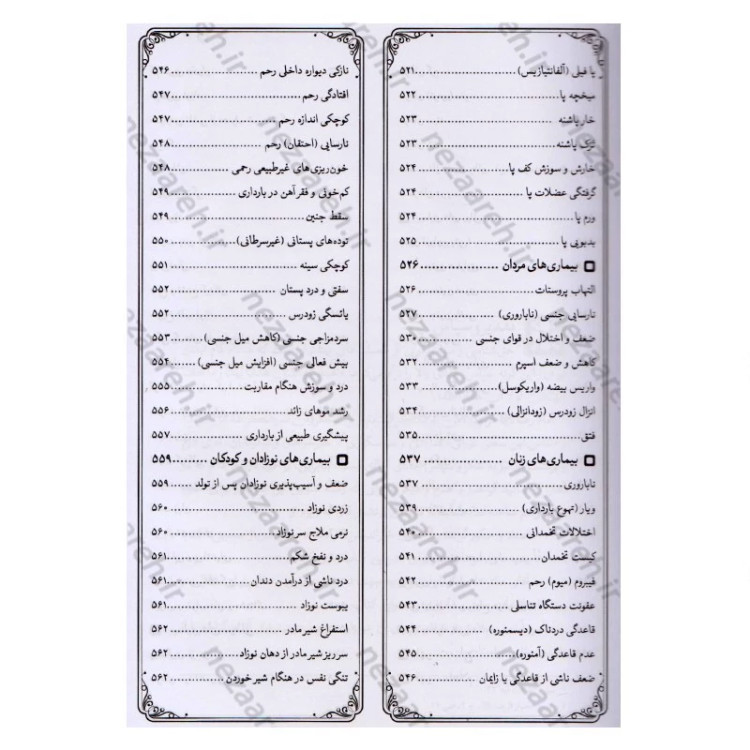 پا فیلی (آلفانتیازیس) ۵۲۱
میخچه پا ۵۲۲
خار پاشنه ۵۲۳
ترک پاشنه ۵۲۳
خارش و سوزش کف پا ۵۲۴
گرفتگی عضلات پا ۵۲۴
ورم پا ۵۲۴
بدبویی پا ۵۲۵
بیماری‌های مردان ۵۲۶
التهاب پروستات ۵۲۶
نارسایی جنسی (ناباروری) ۵۲۷
ضعف و اختلال در قوای جنسی ۵۳۰
کاهش و ضعف اسپرم ۵۳۲
واریس بیضه (واریکوسل) ۵۳۳
انزال زودرس (زودانزالی) ۵۳۴
فتق ۵۳۵
بیماری‌های زنان ۵۳۷
ناباروری ۵۳۷
ویار (تهوع بارداری) ۵۳۹
اختلالات تخمدانی ۵۴۰
کیست تخمدان ۵۴۱
فیبروم (میوم) رحم ۵۴۲
عفونت دستگاه تناسلی ۵۴۳
قاعدگی دردناک (دیسمنوره) ۵۴۴
عدم قاعدگی (آمنوره) ۵۴۵
ضعف ناشی از قاعدگی یا زایمان ۵۴۶
نازکی دیواره داخلی رحم ۵۴۶
افتادگی رحم ۵۴۷
کوچکی اندازه رحم ۵۴۷
نارسایی (احتقان) رحم ۵۴۸
خون‌ریزی‌های غیرطبیعی رحمی ۵۴۸
کم‌خونی و فقر آهن در بارداری ۵۴۹
سقط جنین ۵۴۹
توده‌های پستانی (غیرسرطانی) ۵۵۰
کوچکی سینه ۵۵۱
سفتی و درد پستان ۵۵۲
یائسگی زودرس ۵۵۲
سردمزاجی جنسی (کاهش میل جنسی) ۵۵۳
بیش فعالی جنسی (افزایش میل جنسی) ۵۵۴
درد و سوزش هنگام مقاربت ۵۵۵
رشد موهای زائد ۵۵۶
پیشگیری طبیعی از بارداری ۵۵۷
بیماری‌های نوزادان و کودکان ۵۵۹
ضعف و آسیب‌پذیری نوزادان پس از تولد ۵۵۹
زردی نوزاد ۵۶۰
نرمی ملاج سر نوزاد ۵۶۰
درد و نفخ شکم ۵۶۱
درد ناشی از درآمدن دندان ۵۶۱
یبوست نوزاد ۵۶۱
استفراغ شیر مادر ۵۶۲
سرریز شیر مادر از دهان نوزاد ۵۶۲
تنگی نفس در هنگام شیر خوردن ۵۶۲
nezaareh.ir